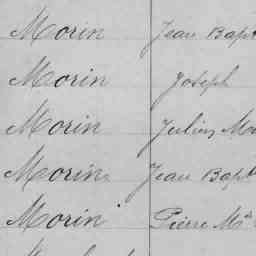 Morin Jean Bapt
Morin Joseph
Morin Julius
Morin Jean Bapt
Morin Pierre